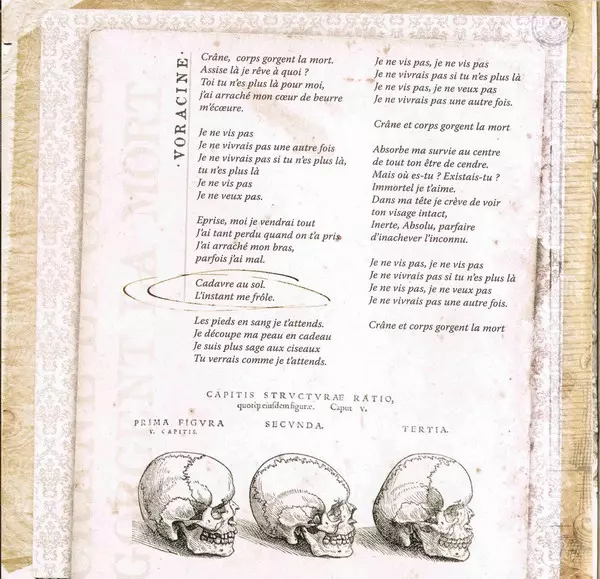 VORACINE
Crâne, corps gorgent la mort.
Assise là je rêve à quoi ?
Toi tu n'es plus là pour moi,
j'ai arraché mon cœur de beurre
m'écœure.
Je ne vis pas
Je ne vivrais pas une autre fois
Je ne vivrais pas si tu n'es plus là,
tu n'es plus là
Je ne vis pas
Je ne veux pas.
Eprise, moi je vendrai tout
J'ai tant perdu quand on t'a pris
J'ai arraché mon bras,
parfois j'ai mal.
Cadavre au sol.
L'instant me frôle.
Les pieds en sang je t'attends.
Je découpe ma peau en cadeau
Je suis plus sage aux ciseaux
Tu verrais comme je t'attends.
Je ne vis pas, je ne vis pas
Je ne vivrais pas si tu n'es plus là
Je ne vis pas, je ne veux pas
Je ne vivrais pas une autre fois.
Crâne et corps gorgent la mort
Absorbe ma survie au centre
de tout ton être de cendre.
Mais où es-tu ? Existais-tu ?
Immortel je t'aime.
Dans ma tête je crève de voir
ton visage intact,
Inerte, Absolu, parfaire
d'inachever l'inconnu.
Je ne vis pas, je ne vis pas
Je ne vivrais pas si tu n'es plus là
Je ne vis pas, je ne veux pas
Je ne vivrais pas une autre fois.
Crâne et corps gorgent la mort
CAPITIS STRVCTVRAE RATIO,
quotq; eiusdem figuræ. Caput V.
PRIMA FIGVRA
V. CAPITIS.
SECVNDA.
TERTIA.